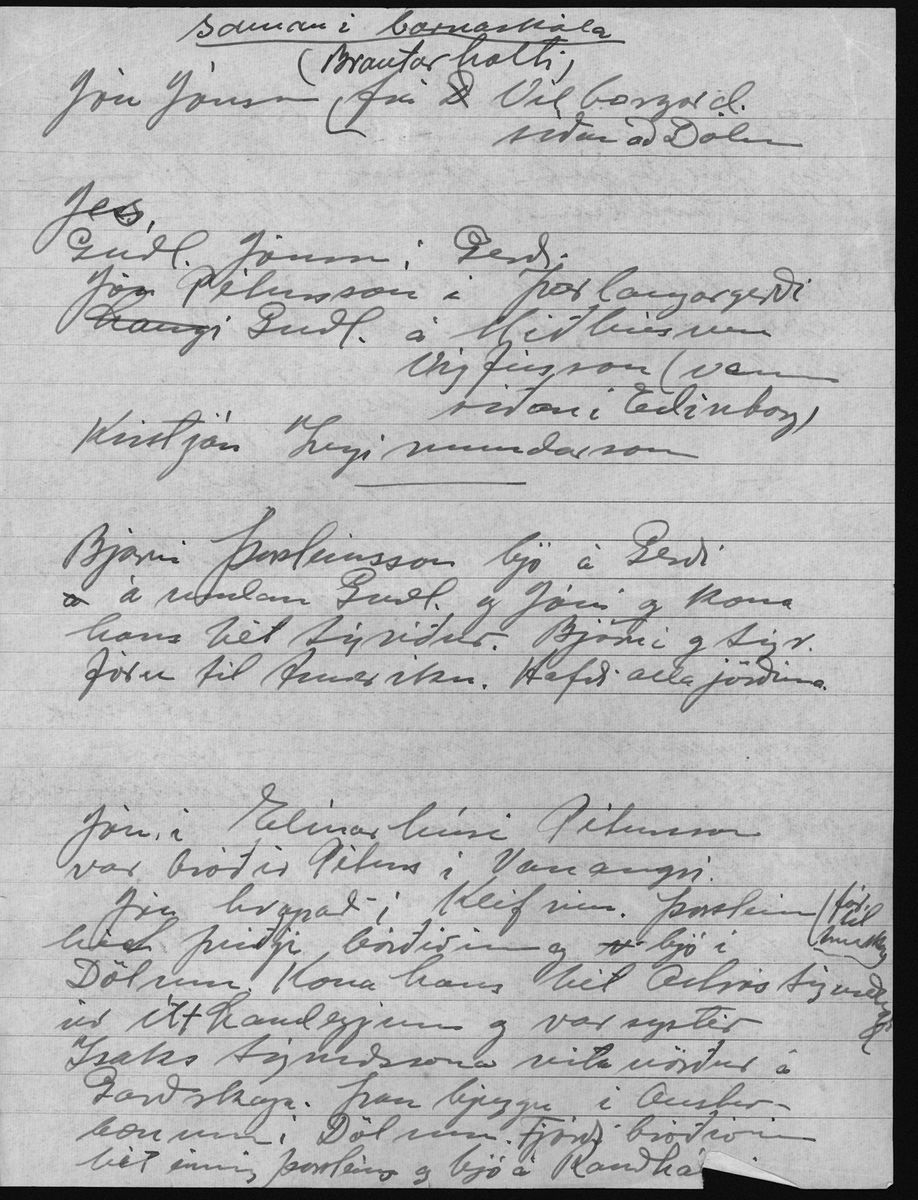 saman í barnaskóla
(Brautarholti)
Jón Jónsson (frá Vilborgarst.
síðan að Dölum
Jes,
Guðl. Jónsson í Gerði
Jón Pétursson í Þorlaugargerði
Guðl. á Miðhúsum
Vigfússon (var
síðan í Edinborg)
Kristján Ingimundarson
Bjarni Þorsteinsson bjó á Gerði
á á undan Guðl. og Jóni og kona
hans hét Sigríður. Björn og Sigr.
fóru til Ameríku. Hafði alla jörðina.
Jón í Elínarhúsi Pétursson
var bróðir Péturs í Vanangri.
Jón hrapaði í Klifinu. Þorsteinn (fór til Ameríku)
hét þriðji bróðirinn og bjó í
Dölum. Kona hans hét Sigurðard.
úr Útlandeyjum og var systir
Ísaks Sigurðssonar vitavörður á
Garðskaga. Þau bjuggu í Austur-
bænum í Dölum. Fjórði bróðirinn
hét einnig Þorsteinn og bjó á